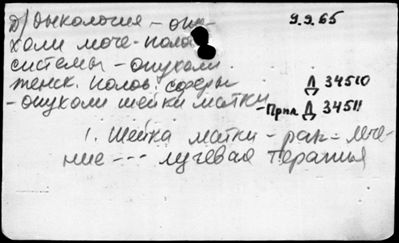 д) Онкология – опу-
холи моче-полов
системы – опухоли
женск. полов. сферы
– опухоли шейки матки
9.9.65
Д 34510
Прил. Д 34511
1. Шейка матки – рак – лече-
ние --- лучевая терапия